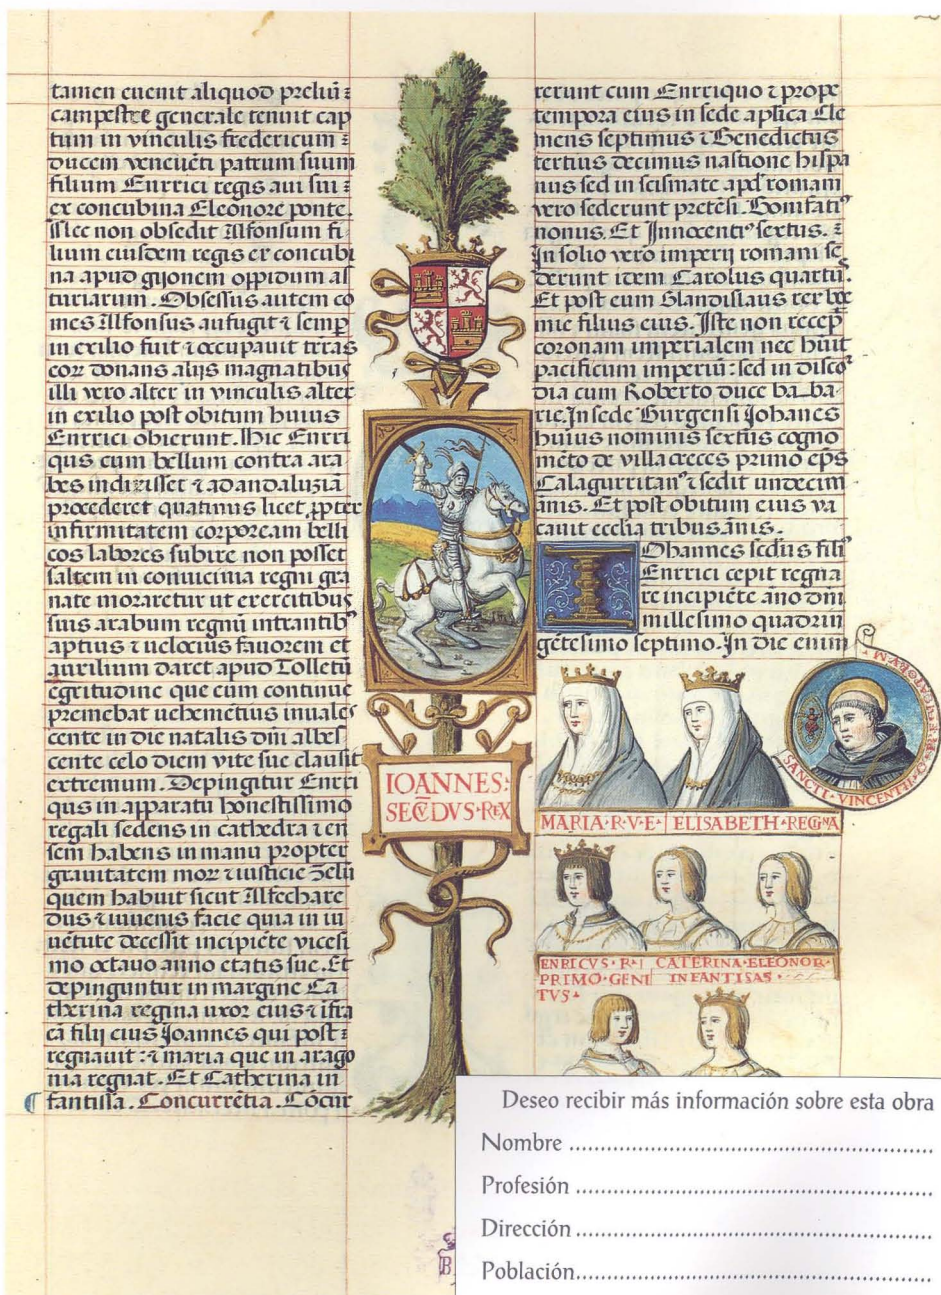 tamen euenit aliquod preliũ :
campestre generale tenuit cap
tum in vinculis fredericum :
ducem veneuẽti patrum suum
filium Enrrici regis aui sui :
ex concubina Eleonore ponte.
Nec non obsedit Alfonsum fi
lium eiusdem regis ex concubi
na apud gijonem oppidum as
turiarum. Obsessus autem co
mes Alfonsus aufugit ⁊ semp
in exilio fuit ⁊ occupauit terras
donans alijs magnatibus
illi vero alter in vinculis alter
in exilio post obitum huius
Enrrici obierunt. Hic Enrri
qus cum bellum contra ara
bes indixisset ⁊ ad andaluziã
procederet quatinus licet ꝓpter
infirmitatem corpoream belli
cos labores subire non posset
saltem in conuicinia regni gra
nate moraretur ut exercitibus
suis arabum regnũ intrantibꝰ
aptius ⁊ uelocius fauorem et
auxilium daret apud Tolletũ
egritudine que eum continue
premebat uehemẽtius inuales
cente in die natalis dñi albes
cente celo diem vite sue clausit
extremum. Depingitur Enrri
qus in apparatu honestissimo
regali sedens in cathedra ⁊ en
sem habens in manu propter
grauitatem mor ⁊ iusticie zelũ
quem habuit sicut Alfechare
dus ⁊ iuuenis facie quia in iu
uẽtute decessit incipiẽte vicesi
mo octauo anno etatis sue. Et
depinguntur in margine Ca
therina regina uxor eius ⁊ ifra
eã filij eius Joannes qui post :
regnauit : ⁊ maria que in arago
nia regnat. Et Catherina in
fantissa. Concurrẽtia. Cõcur
IOANNES:
SECVDVS·REX
rerunt cum Enrriquo ⁊ prope
tempora eius in sede aplica Cle
mens septimus ⁊ Benedictus
tertius decimus nastione hispa
nus sed in scismate apd' romam
vero sederunt pretẽsi. Bonifatiꝰ
nonus. Et Innocentiꝰ sextus. :
In solio vero imperij romani se
derunt item Carolus quartuꝰ.
Et post eum Glandislaus rex boe
mie filius eius. Iste non recepᵗ
coronam imperialem nec huit
pacificum imperiũ: sed in discoꝰ
dia cum Roberto duce ba_ba_
rie. In sede Burgensi Johanes
huius nominis sextus cogno
mẽto de villacreces primo eps̃
Calagurritanꝰ ⁊ sedit undecim
anis. Et post obitum eius va
cauit ecclia tribus ãnis.
IOhannes secũs filiꝰ
Enrrici cepit regna
re incipiẽte año dñi
millesimo quadrin
gẽtesimo septimo. In die enim
SANCTI·VINCENTII
MARIA·R·V·E· ELISABETH·REGINA
ENRICVS·R·I CATERINA·ELEONOR·
PRIMO·GENI INFANTISAS·
TVS·
Deseo recibir más información sobre esta obra
Nombre ..........
Profesión ..........
Dirección ..........
Población..........